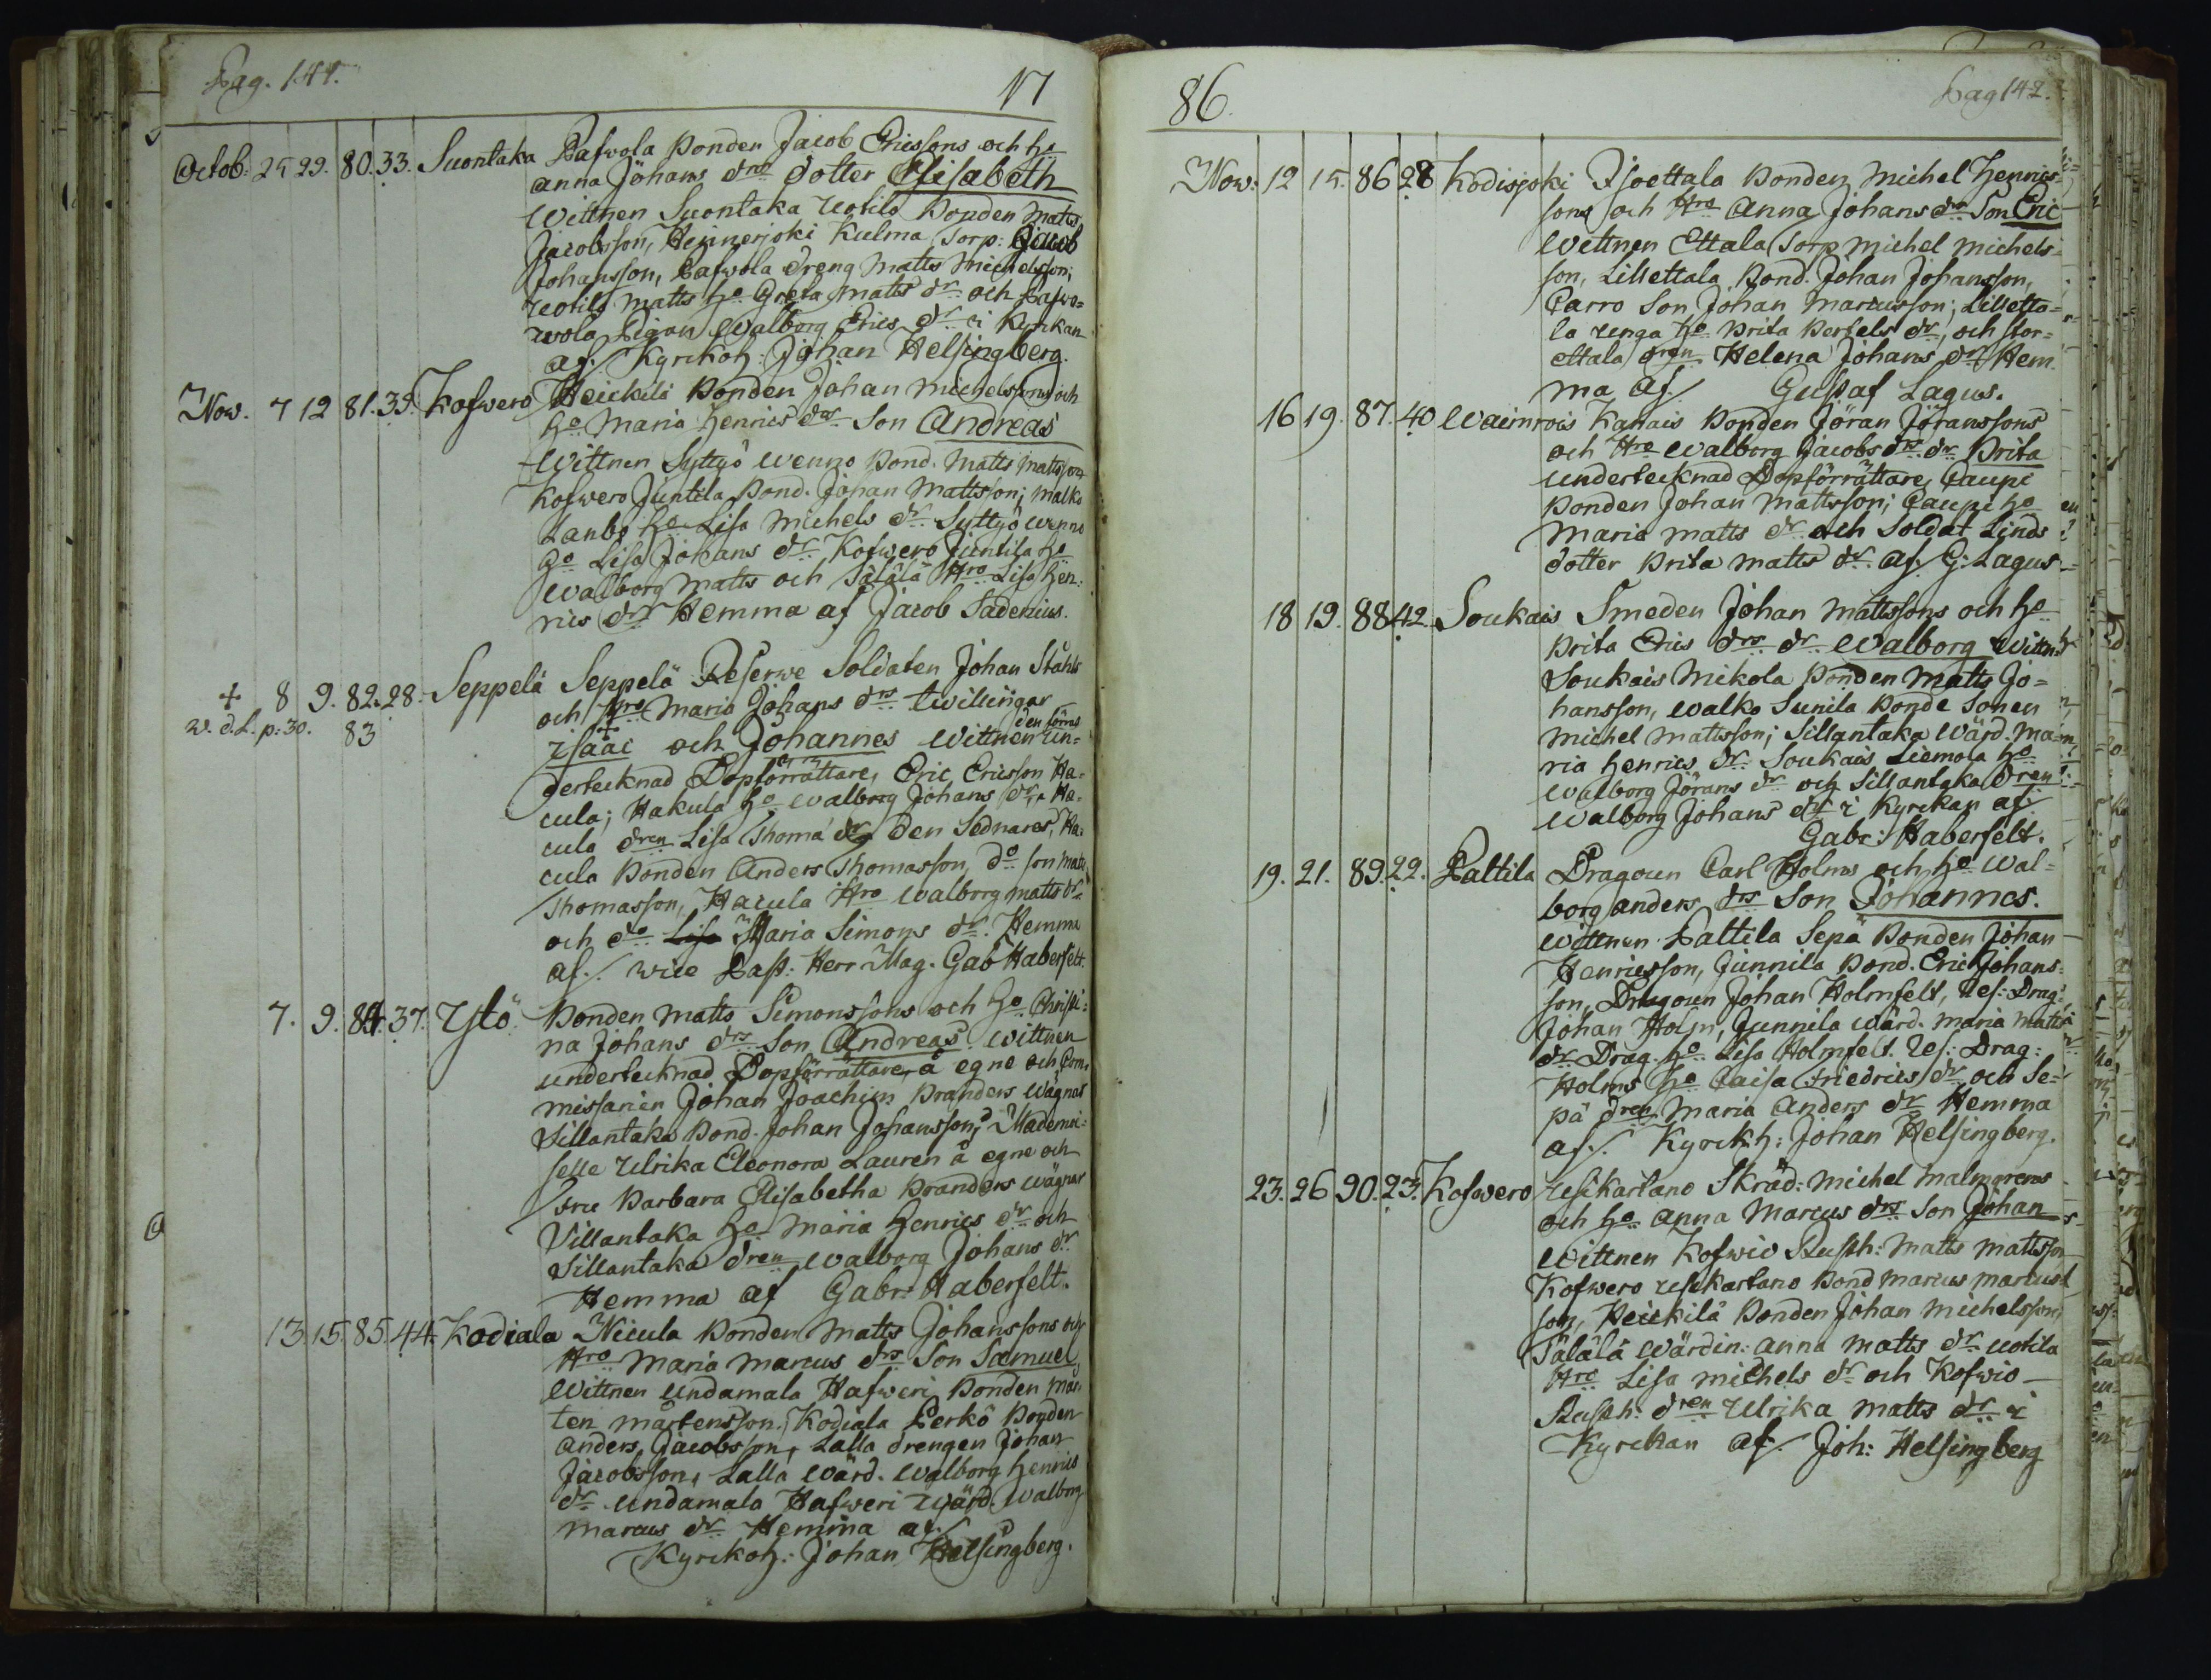 Pag. 141.
17
Octob: 25 29. 80. 33. Suontaka Pafwola Bonden Jacob Ericssons och ho
Anna Johans drs dotter Elisabeth
Wittnen Suontaka Uotila Bonden Matts
Jacobsson, Heinnerjoki Kulma Torp: Jacob
Johansson, Pafwola dreng Matts Michelsson;
Uotila Matts ho Greta Matts dr och Pafwo=
wola Pigan Walborg Erics dr i Kyrkan
af Kyrkoh: Johan Helsingberg.
Now. 7 12 81. 35. Kofwero Heickilä Bonden Johan Michelssons och
ho Maria Henrics drs Son Andreas
Wittnen Syttyö Wenno Bond. Matts Mattsson
Kofwero Juntila Bond. Johan Mattsson; Malko
Lanbo ho Lisa Michels dr Syttyö Wenno
ho Lisa Johans dr Kofwero Juntila ho
Walborg Matts och Sälälä Hro Lisa Hen:
rics dr Hemma af Jacob Sadenius.
+ 8 9. 82. 28. Seppelä Seppelä Reserwe Soldaten Johan Ståhls
och Hro Maria Johans drs twillingar
w. d. L. p: 30. 83 den förra
Isaac och Johannes Wittnen Un=
dertecknad Dopförrättare, Eric Ericsson Ha=
cula; Hakula ho Walborg Johans dr, Ha=
cula dren Lisa Thoma dr den Sednares, Ha:
cula Bonden Anders Thomasson, do son Matts
Thomasson, Hacula Hro Walborg Matts dr
och do Lisa Maria Simons dr. Hemma
af. Wice Past: Herr Mag. Gab Haberfelt.
7. 9. 84. 37. Ylö Bonden Matts Simonssons och ho Christi:
na Johans drs Son Andreas Wittnen
undertecknad Dopförrättare, å egne och Com=
missarien Johan Joachim Branders wägnar
Sillantaka Bond. Johan Johansson; Mademoi:
selle Ulrika Eleonora Lauren å egne och
Fru Barbara Elisabetha Branders wägnar
Villantaka ho Maria Henrics dr och
Sillantaka dren Walborg Johans dr
Hemma af Gabr: Haberfelt.
13. 15. 85. 44. Kodiala Nicula Bonden Matts Johanssons och
Hro Maria Marcus drs Son Samuel,
Wittnen Undamala Hafweri Bonden Mår,
ten Mårtensson. Kodiala Perkö Bonden
Anders Jacobsson, Lalla drengen Johan
Jacobsson, Lalla Wärd. Walborg Henrics
dr Undamala Hafweri Wärd. Walborg
Marcus dr Hemma af
Kyrckoh: Johan Helsingberg.
86.
Pag 142.
Now: 12 15. 86 28 Kodisjoki Isoettala Bonden Michel Henrics=
sons och Hro Anna Johans drs Son Eric
Wittnen Ettala Torp Michel Michels=
son, Lillettala Bond. Johan Johansson,
Carro Son Johan Marcusson; Lilletta=
la Unga ho Brita Bertels dr, och Stor=
ettala dren Helena Johans dr Hem
ma af Gustaf Lagus.
16 19. 87. 40 Waimrois Kahais Bonden Jöran Jöranssons
och Hro Walborg Jacobs drs dr Brita
undertecknad Dopförrättare, Caupi
Bonden Johan Mattsson; Caupi ho
Maria Matts dr och Soldat Linds
dotter Brita Matts dr af. G: Lagus
18 19. 88 42. Soukais Smeden Johan Mattssons och ho
Brita Erics drs dr Walborg Wittn:
Soukais Mickola Bonden Matts Jo=
hansson, Walko Sunila Bonde Sonen
Michel Mattsson; Sillantaka Wärd. Ma=
ria Henrics dr Soukais Liemola ho
Walborg Jörans dr och Sillantaka dren
Walborg Johans dr i Kyrckan af
Gabr: Haberfelt.
19. 21. 89. 22. Pattila Dragoun Carl Holms och ho Wal=
borg Anders drs Son Johannes.
Wittnen Pattila Sepä Bonden Johan
Henricsson, Junnila Bond. Eric Johans=
son, Dragoun Johan Holmfelt, Res: Drag:
Johan Holm, Junnila Wärd. Maria Matts
dr Drag. ho Lisa Holmfelt. Res: Drag:
Holms ho Caisa Friedrics dr och Se=
pä dren Maria Anders dr Hemma
af. Kyrckh: Johan Helsingberg.
23. 26 90. 23. Kofwero Usikartano Skräd: Michel Malmgrens
och ho Anna Marcus drs Son Johan
Wittnen Kofwio Rusth: Matts Mattsson
Kofwero Usikartano Bond Marcus Marcus
son, Heickilä Bonden Johan Michelsson,
Sälälä Wärdin: Anna Matts dr Uotila
Hro Lisa Michels dr och Kofwio
Rusth: dren Ulrika Matts dr i
Kyrckan af. Joh: Helsingberg